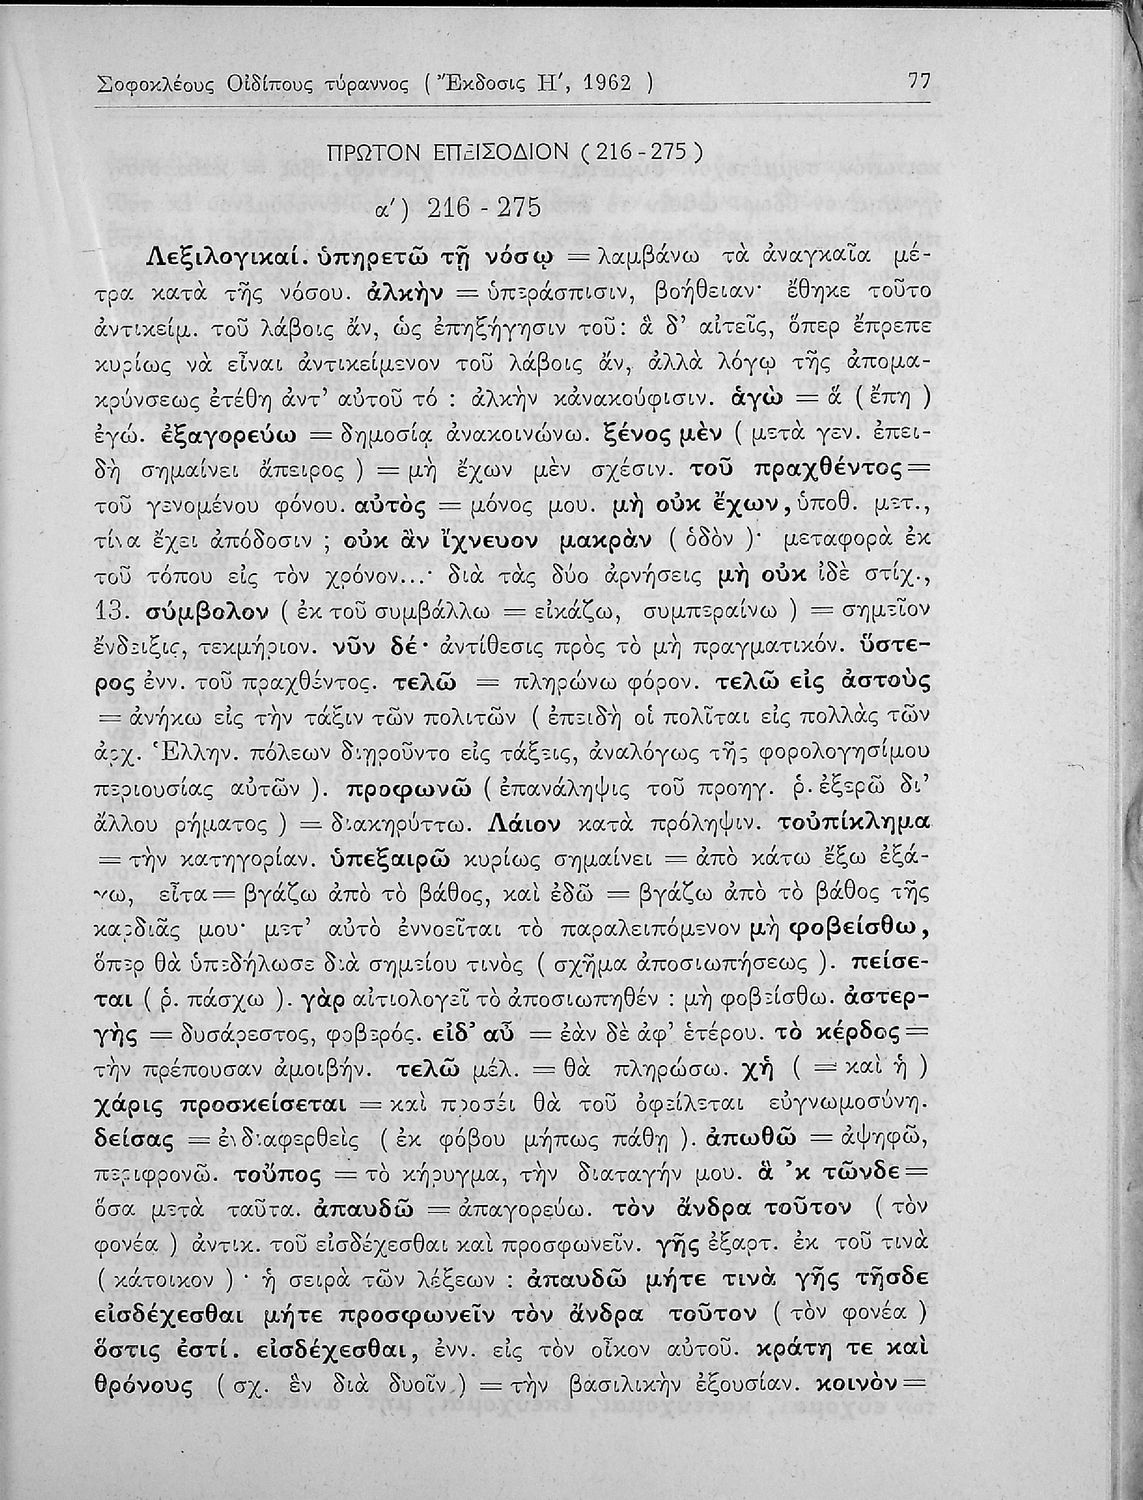 Σοφοκλέους Οἰδίπους τύραννος ( Ἔκδοσις Η΄, 1962 ) 77
ΠΡΩΤΟΝ ΕΠΕΙΣΟΔΙΟΝ ( 216 - 275 )
α΄) 216 - 275
Λεξιλογικαί. ὑπηρετῶ τῇ νόσῳ = λαμβάνω τὰ ἀναγκαῖα μέ-
τρα κατὰ τῆς νόσου. ἀλκὴν = ὑπεράσπισιν, βοήθειαν· ἔθηκε τοῦτο
ἀντικείμ. τοῦ λάβοις ἄν, ὡς ἐπηξήγησιν τοῦ: ἃ δ’ αἰτεῖς, ὅπερ ἔπρεπε
κυρίως νὰ εἶναι ἀντικείμενον τοῦ λάβοις ἄν, ἀλλὰ λόγῳ τῆς ἀπομα-
κρύνσεως ἐτέθη ἀντ’ αὐτοῦ τό : ἀλκὴν κἀνακούφισιν. ἁγὼ = ἅ ( ἔπη )
ἐγώ. ἐξαγορεύω = δημοσίᾳ ἀνακοινώνω. ξένος μὲν ( μετὰ γεν. ἐπει-
δὴ σημαίνει ἄπειρος ) = μὴ ἔχων μὲν σχέσιν. τοῦ πραχθέντος =
τοῦ γενομένου φόνου. αὐτὸς = μόνος μου. μὴ οὐκ ἔχων, ὑποθ. μετ.,
τίνα ἔχει ἀπόδοσιν ; οὐκ ἂν ἴχνευον μακρὰν ( ὁδὸν )· μεταφορὰ ἐκ
τοῦ τόπου εἰς τὸν χρόνον...· διὰ τὰς δύο ἀρνήσεις μὴ οὐκ ἰδὲ στίχ.,
13. σύμβολον ( ἐκ τοῦ συμβάλλω = εἰκάζω, συμπεραίνω ) = σημεῖον
ἔνδειξις, τεκμήριον. νῦν δέ· ἀντίθεσις πρὸς τὸ μὴ πραγματικόν. ὕστε-
ρος ἐνν. τοῦ πραχθέντος. τελῶ = πληρώνω φόρον. τελῶ εἰς ἀστοὺς
= ἀνήκω εἰς τὴν τάξιν τῶν πολιτῶν ( ἐπειδὴ οἱ πολῖται εἰς πολλὰς τῶν
ἀρχ. Ἑλλην. πόλεων διῃροῦντο εἰς τάξεις, ἀναλόγως τῆς φορολογησίμου
περιουσίας αὐτῶν ). προφωνῶ ( ἐπανάληψις τοῦ προηγ. ῥ. ἐξερῶ δι’
ἄλλου ρήματος ) = διακηρύττω. Λάιον κατὰ πρόληψιν. τοὐπίκλημα
= τὴν κατηγορίαν. ὑπεξαιρῶ κυρίως σημαίνει = ἀπὸ κάτω ἔξω ἐξά-
γω, εἶτα = βγάζω ἀπὸ τὸ βάθος, καὶ ἐδῶ = βγάζω ἀπὸ τὸ βάθος τῆς
καρδιᾶς μου· μετ’ αὐτὸ ἐννοεῖται τὸ παραλειπόμενον μὴ φοβείσθω,
ὅπερ θὰ ὑπεδήλωσε διὰ σημείου τινὸς ( σχῆμα ἀποσιωπήσεως ). πείσε-
ται ( ῥ. πάσχω ). γὰρ αἰτιολογεῖ τὸ ἀποσιωπηθέν : μὴ φοβείσθω. ἀστερ-
γὴς = δυσάρεστος, φοβερός. εἰδ’ αὖ = ἐὰν δὲ ἀφ’ ἑτέρου. τὸ κέρδος =
τὴν πρέπουσαν ἀμοιβήν. τελῶ μέλ. = θὰ πληρώσω. χἡ ( = καὶ ἡ )
χάρις προσκείσεται = καὶ προσέτι θὰ τοῦ ὀφείλεται εὐγνωμοσύνη.
δείσας = ἐνδιαφερθεὶς ( ἐκ φόβου μήπως πάθῃ ). ἀπωθῶ = ἀψηφῶ,
περιφρονῶ. τοὔπος = τὸ κήρυγμα, τὴν διαταγήν μου. ἃ ’κ τῶνδε =
ὅσα μετὰ ταῦτα. ἀπαυδῶ = ἀπαγορεύω. τὸν ἄνδρα τοῦτον ( τὸν
φονέα ) ἀντικ. τοῦ εἰσδέχεσθαι καὶ προσφωνεῖν. γῆς ἐξαρτ. ἐκ τοῦ τινὰ
( κάτοικον ) · ἡ σειρὰ τῶν λέξεων : ἀπαυδῶ μήτε τινὰ γῆς τῆσδε
εἰσδέχεσθαι μήτε προσφωνεῖν τὸν ἄνδρα τοῦτον ( τὸν φονέα )
ὅστις ἐστί. εἰσδέχεσθαι, ἐνν. εἰς τὸν οἶκον αὐτοῦ. κράτη τε καὶ
θρόνους ( σχ. ἓν διὰ δυοῖν ) = τὴν βασιλικὴν ἐξουσίαν. κοινὸν =